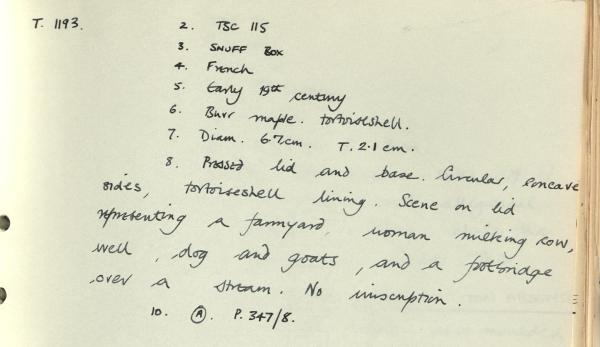 T. 1193. 2. TSC 115
3. SNUFF BOX
4. French
5. Early 19th century
6. Burr maple. tortoiseshell.
7. Diam. 6.7cm. T. 2.1 cm.
8. Pressed lid and base. Circular, concave
sides, tortoiseshell lining. Scene on lid
representing a farmyard, woman milking cow,
well, dog and goats, and a footbridge
over a stream. No inscription.
10. A. P. 347/8.